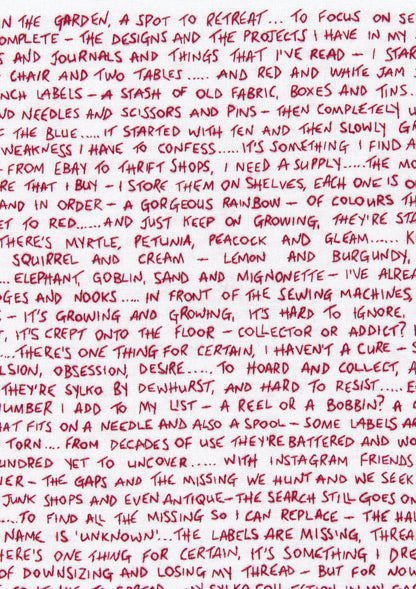 IN THE GARDEN, A SPOT TO RETREAT... TO FOCUS ON SE
OMPLETE – THE DESIGNS AND THE PROJECTS I HAVE IN MY
S AND JOURNALS AND THINGS THAT I'VE READ – I STAR
CHAIR AND TWO TABLES..... AND RED AND WHITE JAM
NCH LABELS – A STASH OF OLD FABRIC, BOXES AND TINS.
ND NEEDLES AND SCISSORS AND PINS – THEN COMPLETELY
F THE BLUE.....IT STARTED WITH TEN AND THEN SLOWLY G
WEAKNESS I HAVE TO CONFESS.....IT'S SOMETHING I FIND A
– FROM EBAY TO THRIFT SHOPS, I NEED A SUPPLY.....THE MO
RE THAT I BUY – I STORE THEM ON SHELVES, EACH ONE IS O
AND IN ORDER – A GORGEOUS RAINBOW – OF COLOURS TH
ET TO RED.....AND JUST KEEP ON GROWING, THEY'RE ST
THERE'S MYRTLE, PETUNIA, PEACOCK AND GLEAM.....
SQUIRREL AND CREAM – LEMON AND BURGUNDY,
... ELEPHANT, GOBLIN, SAND AND MIGNONETTE – I'VE ALREA
DGES AND NOOKS..... IN FRONT OF THE SEWING MACHINES,
– IT'S GROWING AND GROWING, IT'S HARD TO IGNORE,
T, IT'S CREPT ONTO THE FLOOR – COLLECTOR OR ADDICT?
....THERE'S ONE THING FOR CERTAIN, I HAVEN'T A CURE – S
LSION, OBSESSION, DESIRE..... TO HOARD AND COLLECT, A
THEY'RE SYLKO BY DEWHURST, AND HARD TO RESIST.....
NUMBER I ADD TO MY LIST – A REEL OR A BOBBIN? A
HAT FITS ON A NEEDLE AND ALSO A SPOOL – SOME LABELS AR
TORN.... FROM DECADES OF USE THEY'RE BATTERED AND WO
UNDRED YET TO UNCOVER..... WITH INSTAGRAM FRIENDS
ER – THE GAPS AND THE MISSING WE HUNT AND WE SEEK
JUNK SHOPS AND EVEN ANTIQUE – THE SEARCH STILL GOES O
....TO FIND ALL THE MISSING SO I CAN REPLACE – THE HA
NAME IS 'UNKNOWN'...THE LABELS ARE MISSING, THREA
HERE'S ONE THING FOR CERTAIN, IT'S SOMETHING I DRE
OF DOWNSIZING AND LOSING MY THREAD – BUT FOR NOW